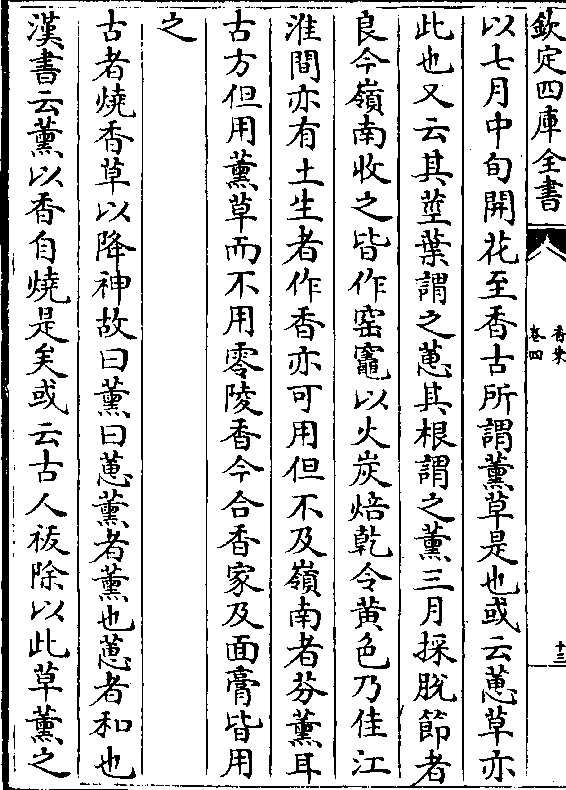 欽定四庫全書
香乘
卷四
十三
以七月中旬開花至香古所謂薰草是也或云蕙草亦
此也又云其莖葉謂之蕙其根謂之薰三月採脫節者
良今嶺南收之皆作窑竈以火炭焙乾令黄色乃佳江
淮間亦有土生者作香亦可用但不及嶺南者芬薰耳
古方但用薰草而不用零陵香今合香家及面膏皆用
之
古者燒香草以降神故曰薰曰蕙薰者薰也蕙者和也
漢書云薰以香自燒是矣或云古人祓除以此草薰之